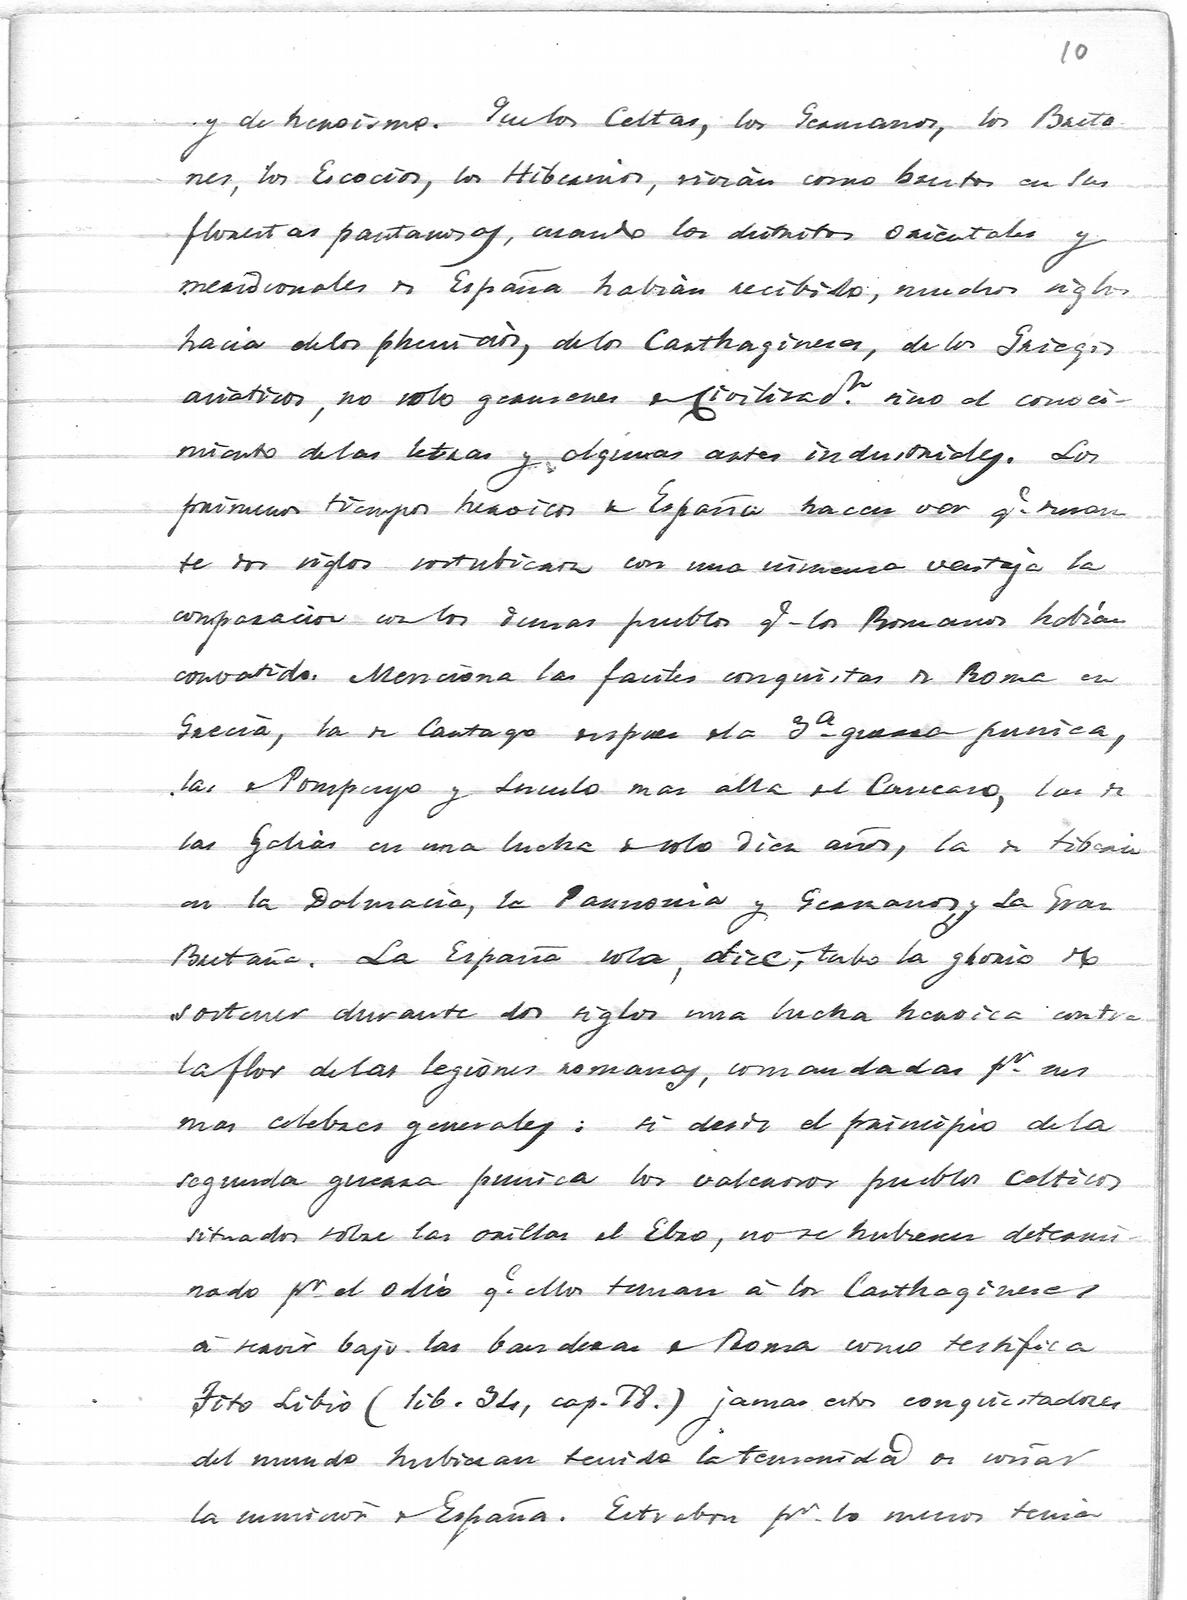 10
y de heroismo. Que los Celtas, los Germanos, los Breto
nes, los Escocios, los Hibernios, vivian como brutos en sus
florestas pantanosas, cuando los distritos orientales y
meridionales de España habian recibido, muchos siglos
hacia de los phenicios, de los Carthagineses, de los Griegos
asiaticos, no solo germenes de Civilizadn. sino el conoci-
miento de las letras y algunas artes industriales. Los
primeros tiempos heroicos de España hacen ver qe. duran
te dos siglos sostubieron con una inmensa ventaja la
comparacion con los demas pueblos qe. los Romanos habian
convatido. Menciona las faciles conquistas de Roma en
Grecia, la de Cartago despues de la 3a. guerra punica,
las de Pompeyo y Luculo mas alla del Caucaso, las de
las Galias en una lucha de solo diez años, la de Tiberio
en la Dalmacia, la Pannonia y Germanos, y La Gran
Bretaña. La España sola, dice, tubo la gloria de
sostener durante dos siglos una lucha heroica contra
la flor de las legiones romanas, comandadas pr. sus
mas celebres generales: si desde el principio de la
segunda guerra punica los valerosos pueblos Celticos
situados sobre las orillas del Ebro, no se hubiesen determi-
nado pr. el odio qe. ellos tenian à los Carthagineses
à servir bajo las banderas de Roma como testifica
Tito Libio (lib. 34, cap. 78.) jamas estos conquistadores
del mundo hubieran tenido la temeridad de
la de España. Estrabon pr. lo menos tenia